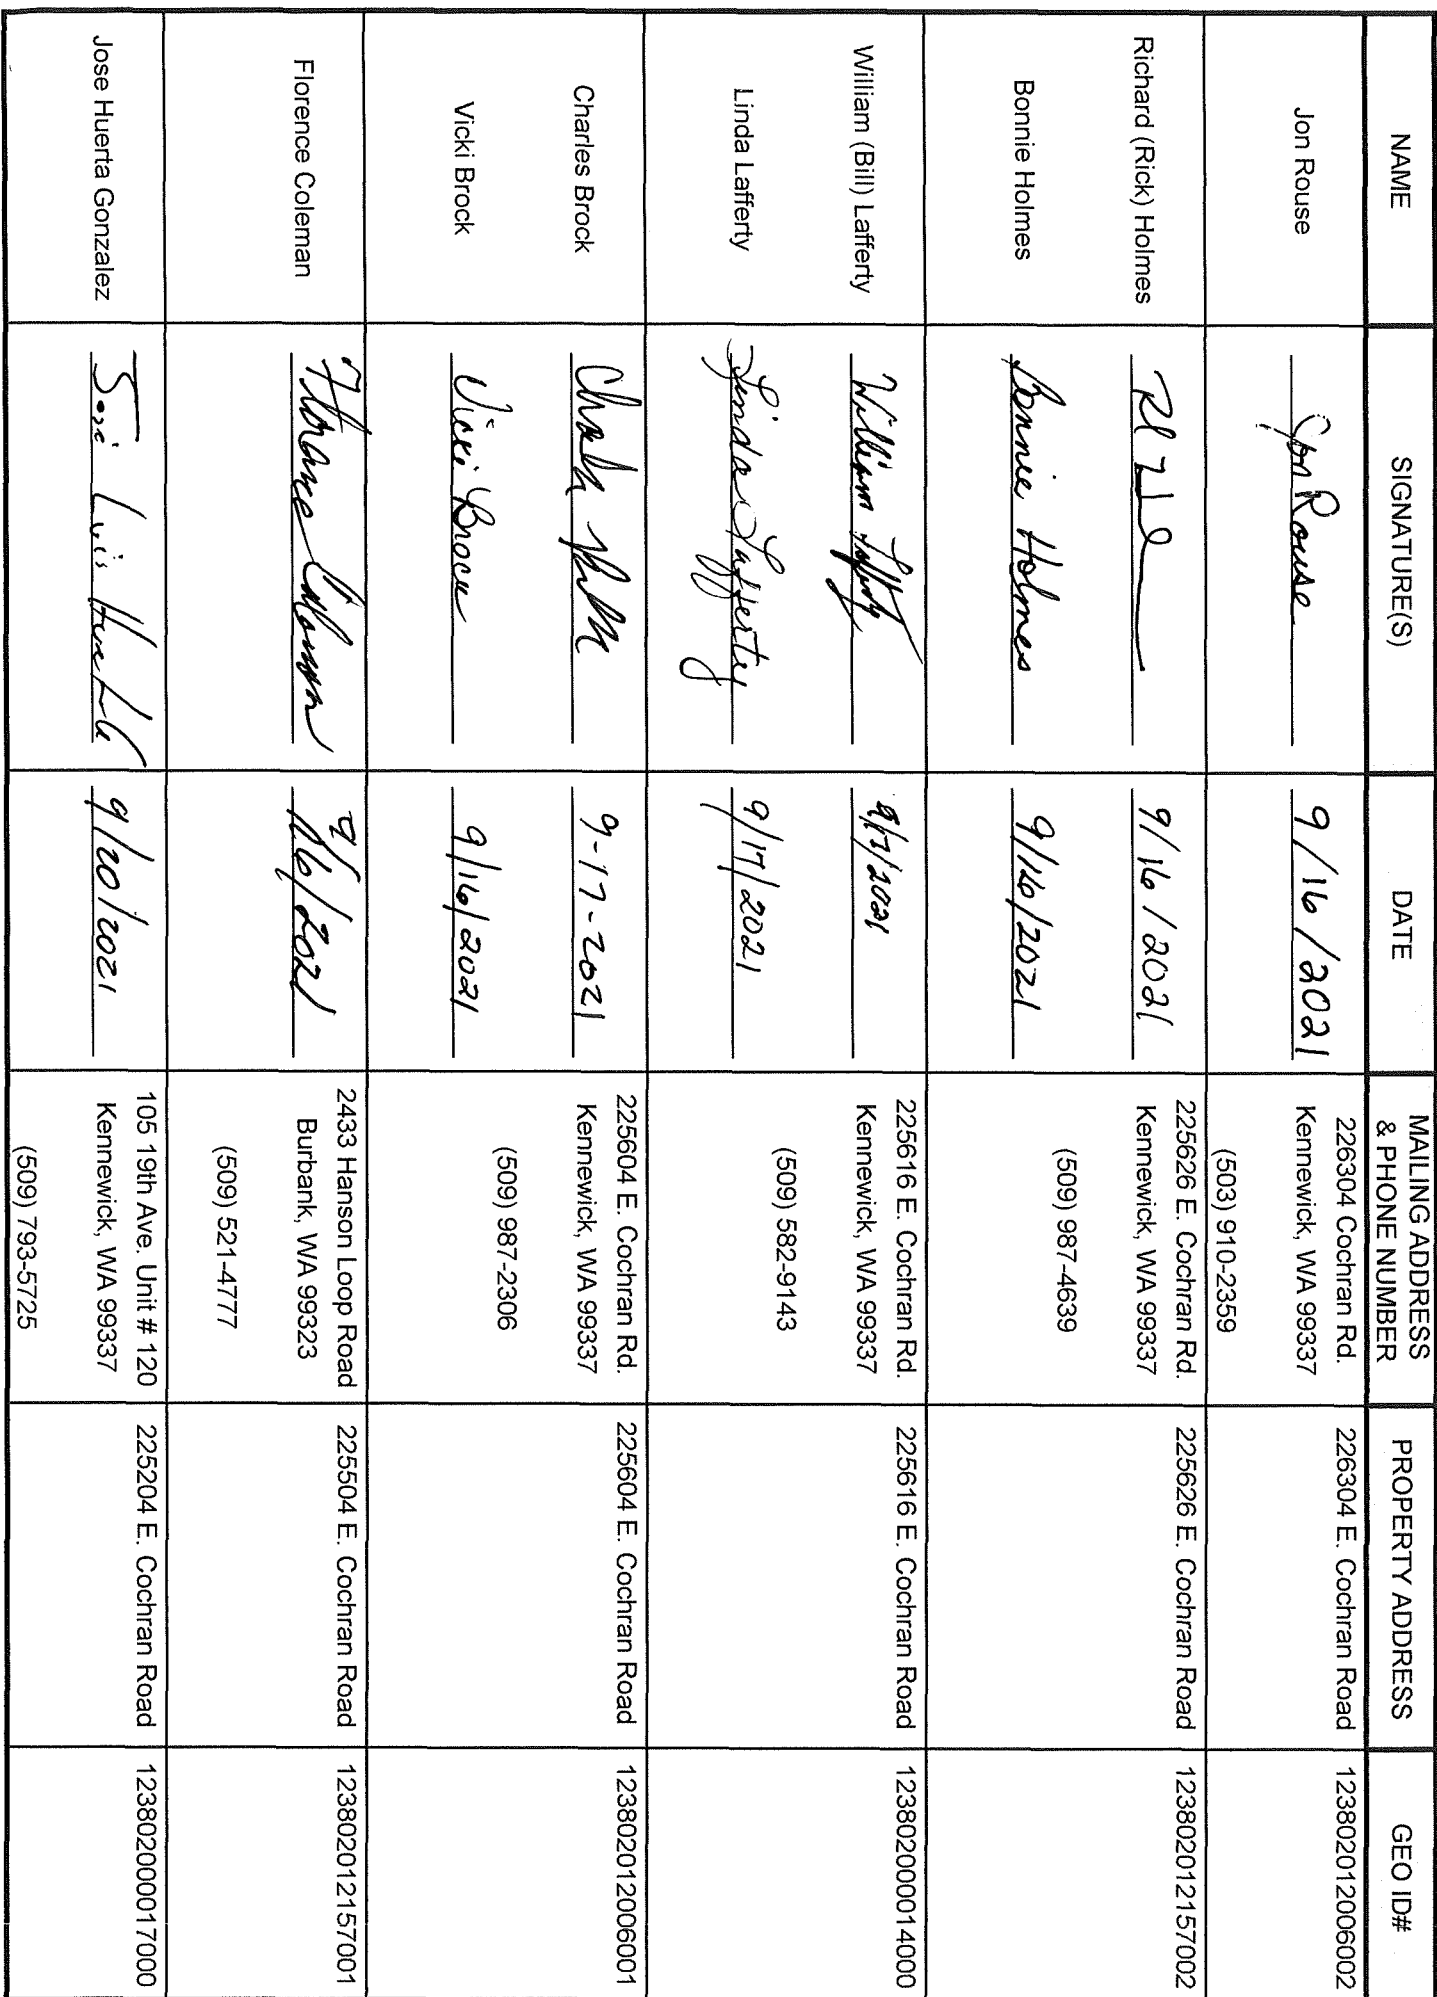 NAME
SIGNATURE(S)
DATE
MAILING ADDRESS
& PHONE NUMBER
PROPERTY ADDRESS
GEO ID#
Jon Rouse
Jon Rouse
9/16/2021
226304 Cochran Rd.
Kennewick, WA 99337
(503) 910-2359
226304 E. Cochran Road
123802012006002
Richard (Rick) Holmes
9/16/2021
Bonnie Holmes
Bonnie Holmes
9/16/2021
225626 E. Cochran Rd.
Kennewick, WA 99337
(509) 987-4639
225626 E. Cochran Road
123802012157002
William (Bill) Lafferty
William Lafferty
9/17/2021
Linda Lafferty
Linda Lafferty
9/17/2021
225616 E. Cochran Rd.
Kennewick, WA 99337
(509) 582-9143
225616 E. Cochran Road
123802000014000
Charles Brock
9-17-2021
Vicki Brock
Vicki Brock
9/16/2021
225604 E. Cochran Rd.
Kennewick, WA 99337
(509) 987-2306
225604 E. Cochran Road
123802012006001
Florence Coleman
Florence Coleman
9/16/2021
2433 Hanson Loop Road
Burbank, WA 99323
(509) 521-4777
225504 E. Cochran Road
123802012157001
Jose Huerta Gonzalez
José Luis Huerta
9/20/2021
105 19th Ave. Unit # 120
Kennewick, WA 99337
(509) 793-5725
225204 E. Cochran Road
123802000017000